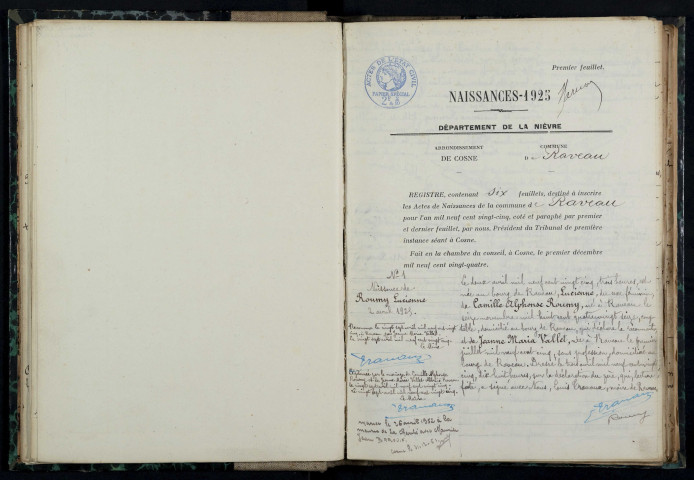 Premier feuillet.
ACTES DE L'ÉTAT CIVIL
PAPIER SPÉCIAL
NAISSANCES-1925
DÉPARTEMENT DE LA NIÈVRE
ARRONDISSEMENT
DE COSNE
COMMUNE
de Raveau
REGISTRE, contenant six feuillets, destiné à inscrire
les Actes de Naissances de la commune de Raveau
pour l'an mil neuf cent vingt-cinq, coté et paraphé par premier
et dernier feuillet, par nous, Président du Tribunal de première
instance séant à Cosne.
Fait en la chambre du conseil, à Cosne, le premier décembre
mil neuf cent vingt-quatre.
N° 1
Naissance de
Roumy Lucienne
2 avril 1925.
Le deux avril mil neuf cent vingt cinq, trois heures, est
née au bourg de Raveau, Lucienne, du sexe féminin,
de Camille Alphonse Roumy, né à Raveau le
seize novembre mil huit cent quatre vingt seize,
domicilié au bourg de Raveau, qui déclare la reconnaître
et de Jeanne Maria Vallet, née à Raveau le premier
juillet mil neuf cent cinq, sans profession, domiciliée au
bourg de Raveau. Dressé le trois avril mil neuf cent vingt
cinq, dix huit heures, sur la déclaration du père, qui, lecture
faite, a signé avec Nous, Louis maire de Raveau
Roumy
le vingt sept avril mil neuf cent vingt cinq.
Le Maire
par le mariage de Camille Alphonse
Roumy et de Jeanne Maria Vallet
Le Maire
mariée le 26 avril 1952 à la
mairie de La Charité avec Maurice
Jean